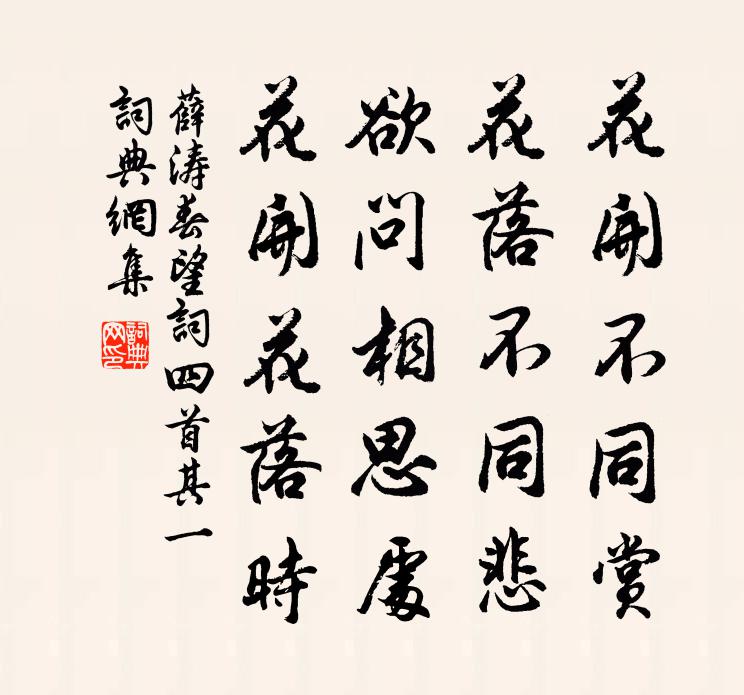 花開不同賞
花落不同悲
欲問相思處
花開花落時
薛濤春望詞四首其一
詞典網集
詞典網印